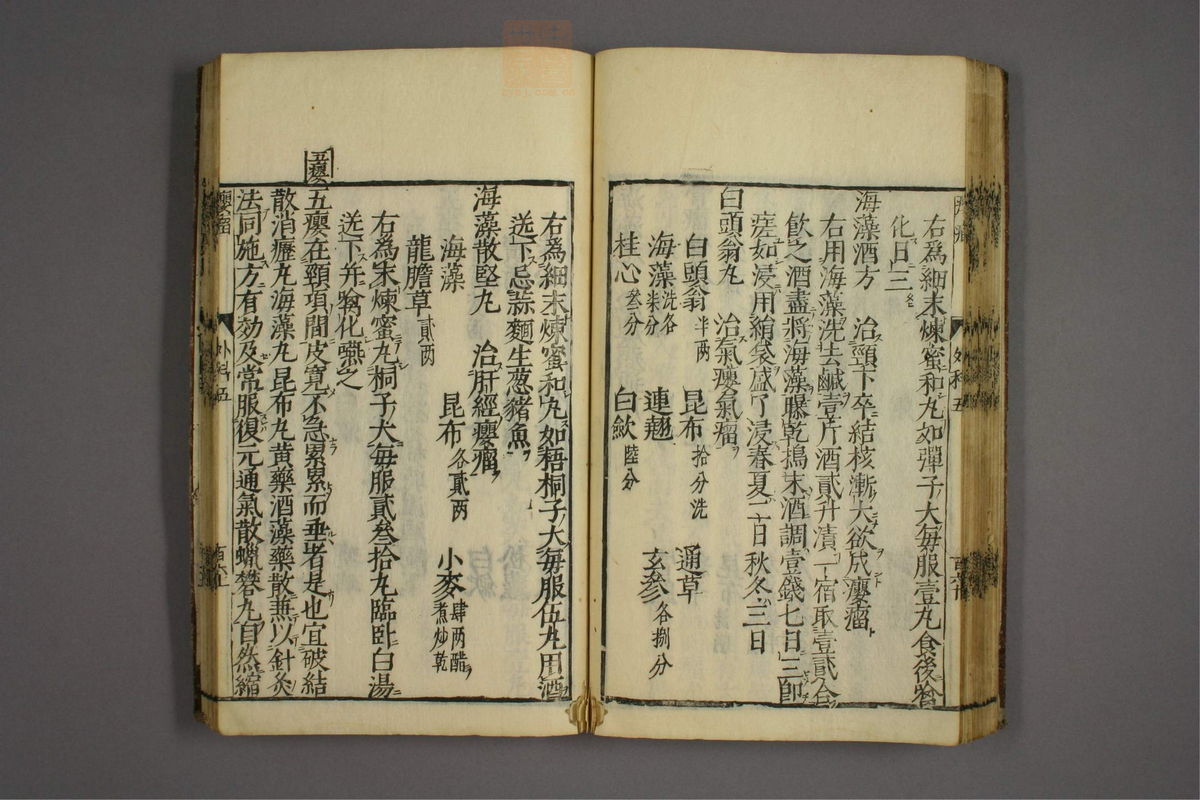 右為細末煉蜜和丸如彈子大每服壹丸食後
化日三
海藻酒方　治頸下卒結核漸大欲成癭瘤
右用海藻洗去鹹壹斤酒貳升漬一宿取壹貳合
飲之酒盡將海藻曝乾搗末酒調壹錢七日三即
瘥如浸用絹袋盛了浸春夏二日秋冬三日
白頭翁丸　治氣癭氣瘤
白頭翁半两　昆布拾分洗　通草
海藻洗各柒分　連翹　玄參各捌分
桂心叁分　白歛陸分
右為細末煉蜜和丸如梧桐子大每服伍丸用酒
送下忌蒜麵生葱豬魚
海藻散堅丸　治肝經癭瘤
海藻　昆布各貳两　小麥肆两醋煮炒乾
龍膽草貳两
右為末煉蜜丸桐子大每服貳叁拾丸臨卧白湯
送下并噙化嚥之
五癭
五癭在頸項間皮寬不急累累而垂者是也宜破結
散消癧丸海藻丸昆布丸黄藥酒藻藥散兼以針灸
法同施方有効及常服復元通氣散蠟礬丸自然縮
外科五